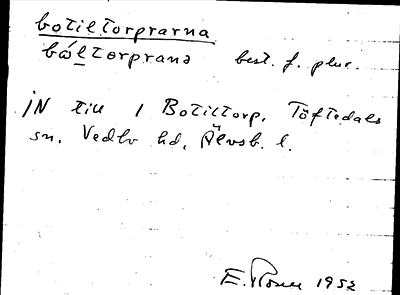 botiltorprarna
bó̲ltorprana best. f. plur.
IN till 1 Botiltorp, Töftedals
sn, Vedbo hd, Älvsb. l.
E. Rosen 1952